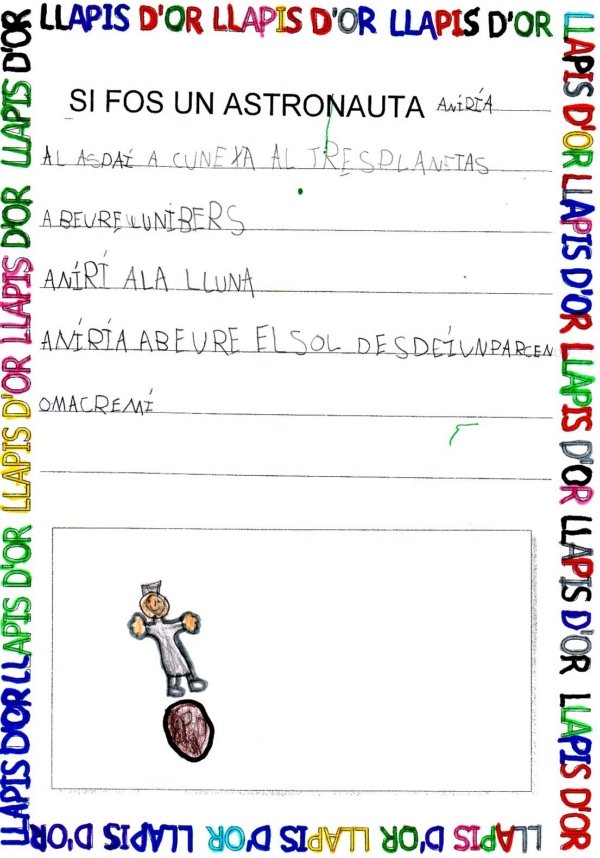 LLAPIS D'OR LLAPIS D'OR LLAPIS D'OR
SI FOS UN ASTRONAUTA ANIRÍA
AL ASDAÍ A CUNEXA AL TRES PLANETAS
A BEURE LUNIBERS
ANÍRÍ ALA LLUNA
ANÍRÍA ABEURE EL SOL DESDEÍUNPARCEN
OMACREMÍ
LLAPIS D'OR LLAPIS D'OR LLAPIS D'OR LLAPIS D'OR
LLAPIS D'OR LLAPIS D'OR LLAPIS D'OR
LLAPIS D'OR LLAPIS D'OR LLAPIS D'OR LLAPIS D'OR LLAPIS D'OR